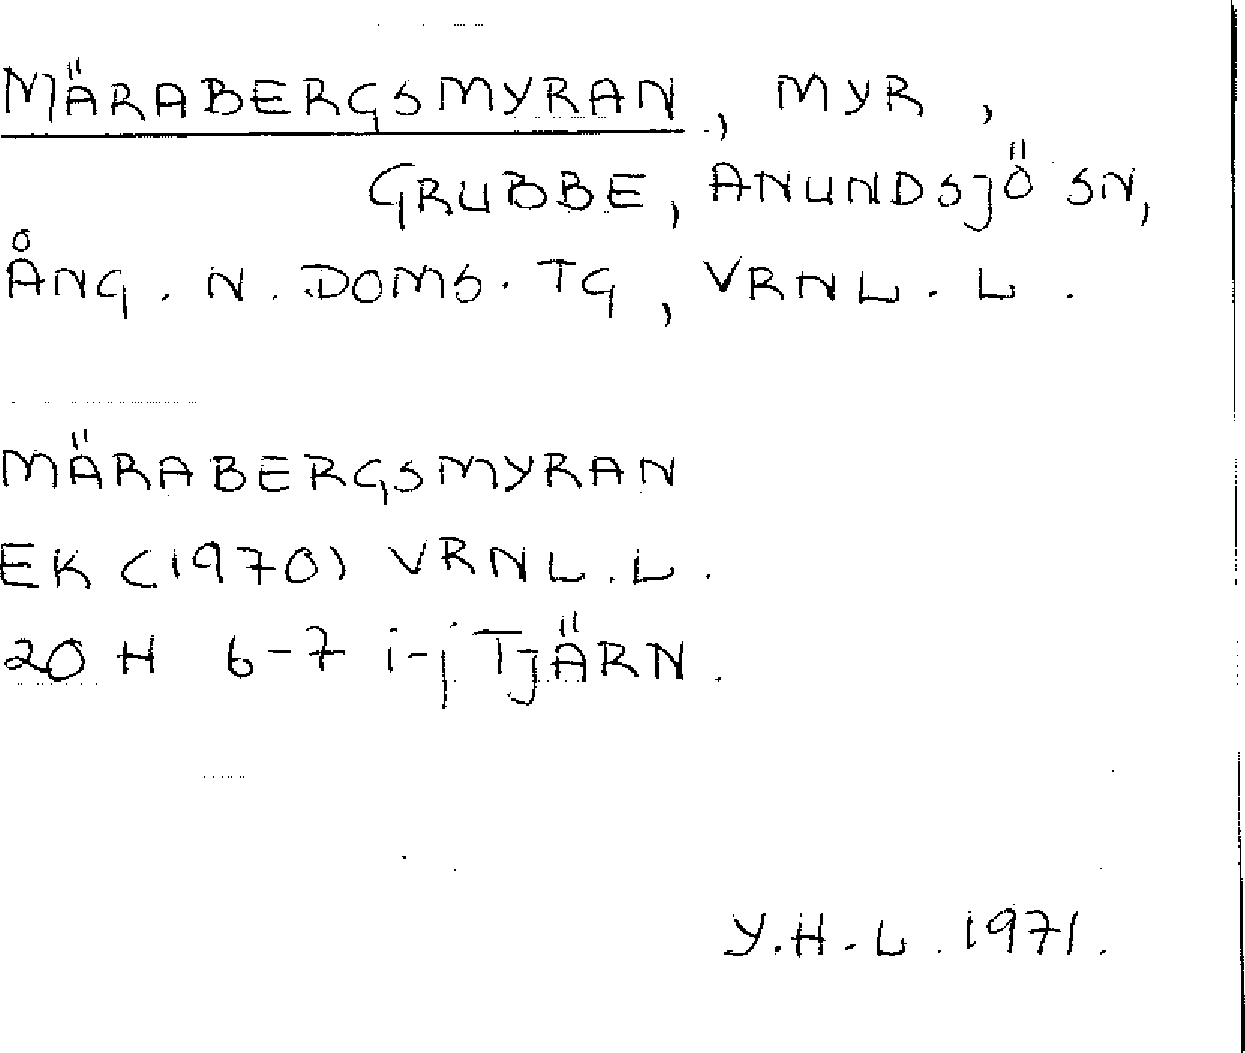 MÄRABERGSMYRAN, MYR,
GRUBBE, ANUNDSJÖ SN,
ÅNG. N. DOMS. TG, VRNL. L.
MÄRABERGSMYRAN
EK (1970) VRNL. L.
20 H 6-7 i-j TJÄRN.
Y.H.L. 1971.